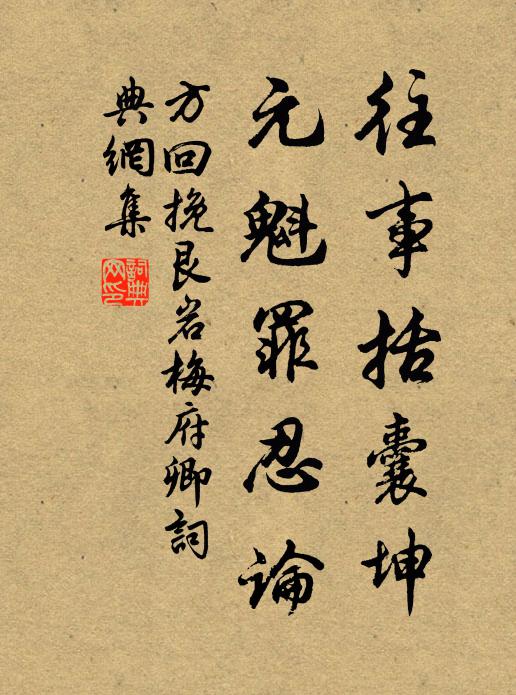 往事括囊坤
元魁罪忍論
方回挽艮岩梅府卿詞
典網集
詞典網印